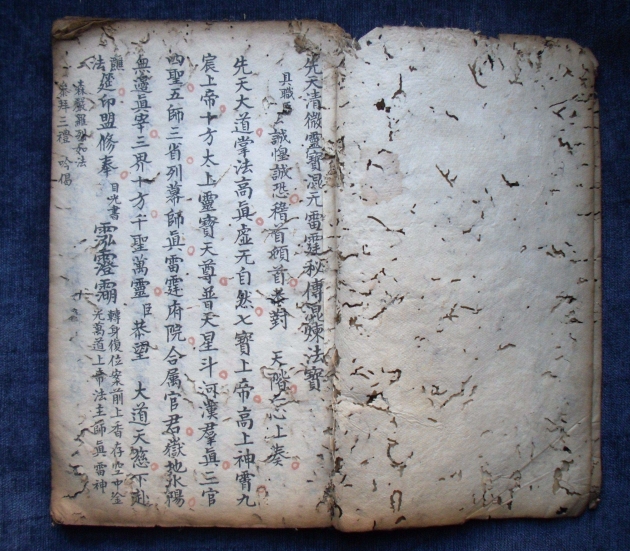 先天清微靈寶混元雷霆秘傳混煉法寶
具職臣 誠惶誠恐稽首頓首恭對 天階 上奏
先天大道掌法高眞虛无自然七寶上帝高上神霄九
宸上帝十方太上靈寶天尊普天星斗河漢羣眞三官
四聖五師三省列幕師眞雷霆府院合属官君嶽地水陽
無邊眞宰三界十方千聖萬靈臣恭望 大道天慈下赴
法筵印盟修奉 目光書
轉身復位案前上香存空中金
光萬道上帝法主師眞雷神
森嚴羅列
三禮